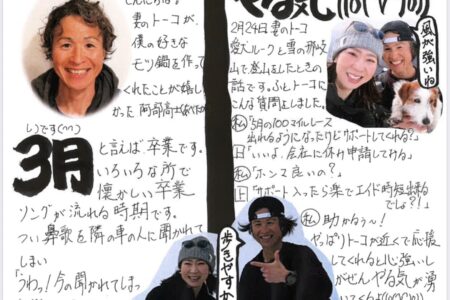 妻のトーコが、
僕の好きな
モツ鍋を作って
くれたことが嬉し
かった
いです(^^)
3月
と言えば卒業です。
いろいろな所で
懐かしい卒業
ソングが流れる時期です。
つい鼻歌を隣の車の人に聞かれて
しまい
「うわっ!今の聞かれてしまっ
やる気
2月24日妻のトーコ
愛犬ルークと
山で登山をしたときの
話です。ふとトーコに
こんな質問をしました。
私「5月の100マイルレース
出れるようになったらサポートしてくれる?」
「いいよ。会社に休み申請してわ」
私「ホンマ良いの?」
「サポート入ったら楽でエイド時短出来る
でしょ?!」
私 助かるぅ〜!
やっぱりトーコが近くで応援
してくれると心強いし
がぜんやる気が湧
風が強いね
歩きやすか